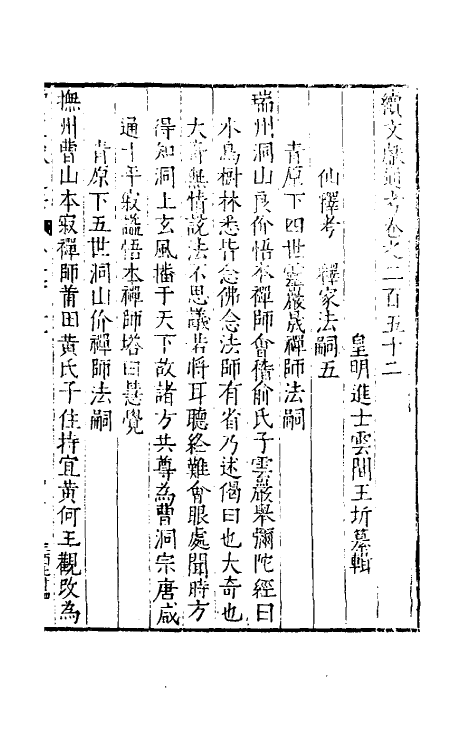 續文獻通考卷之二百五十二
皇明進士雲間王圻纂輯
仙釋考　釋家法嗣五
青原下四世雲巖晟禪師法嗣
瑞州洞山良价悟本禪師會稽俞氏子雲巖舉彌陀經曰
水鳥樹林悉皆念佛念法師有省乃述偈曰也大奇也
大奇無情說法不思議若將耳聽終難會眼處聞時方
得知洞上玄風播于天下故諸方共尊為曹洞宗唐咸
通十年寂謚悟本禪師塔曰慧覺
青原下五世洞山价禪師法嗣
撫州曹山本寂禪師莆田黃氏子住持宜黃何王觀改為